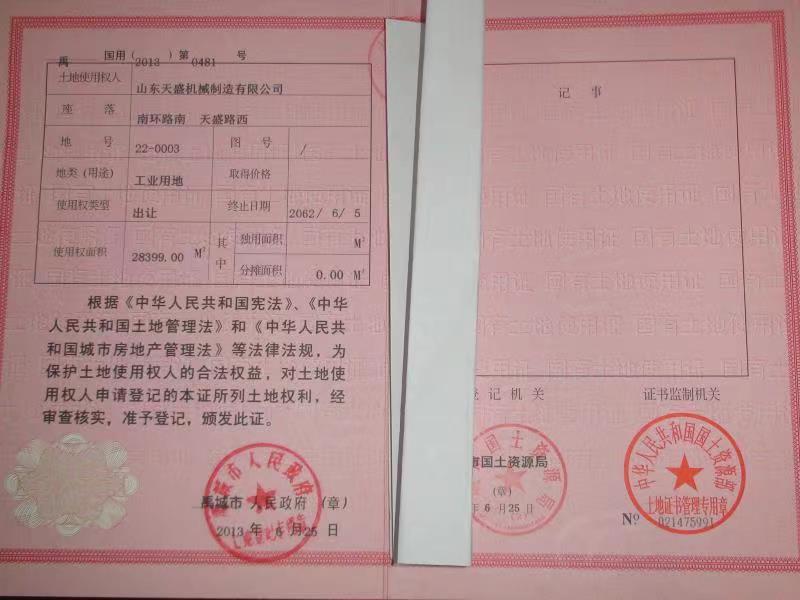 禹 国用（2013）第0481 号
土地使用权人 山东天盛机械制造有限公司
座 落 南环路南 天盛路西
地 号 22-0003 图 号 /
地类（用途） 工业用地 取得价格
使用权类型 出让 终止日期 2062/ 6/ 5
使用权面积 28399.00 M² 其中 独用面积 M²
分摊面积 0.00 M²
根据《中华人民共和国宪法》、《中华
人民共和国土地管理法》和《中华人民共
和国城市房地产管理法》等法律法规，为
保护土地使用权人的合法权益，对土地使
用权人申请登记的本证所列土地权利，经
审查核实，准予登记，颁发此证。
禹城市 人民政府（章）
2013 年 6 月 25 日
禹城市人民政府
记 事
登 记 机 关
国土资源局
（章）
年 6 月 25 日
国土资源局
证书监制机关
中华人民共和国国土资源部
土地证书管理专用章
№ 021475991